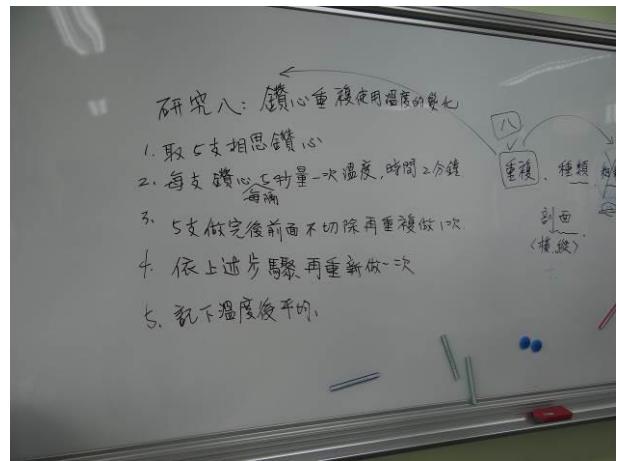 研究八：鑽心重複使用溫度的變化
1. 取5支相思鑽心
2. 每支鑽心每隔5秒量一次溫度，時間2分鐘
3. 5支做完後前面不切除再重複做1次
4. 依上述步驟再重新做一次
5. 記下溫度後平均。
八
重複、種類、
剖面
(橫、縱)